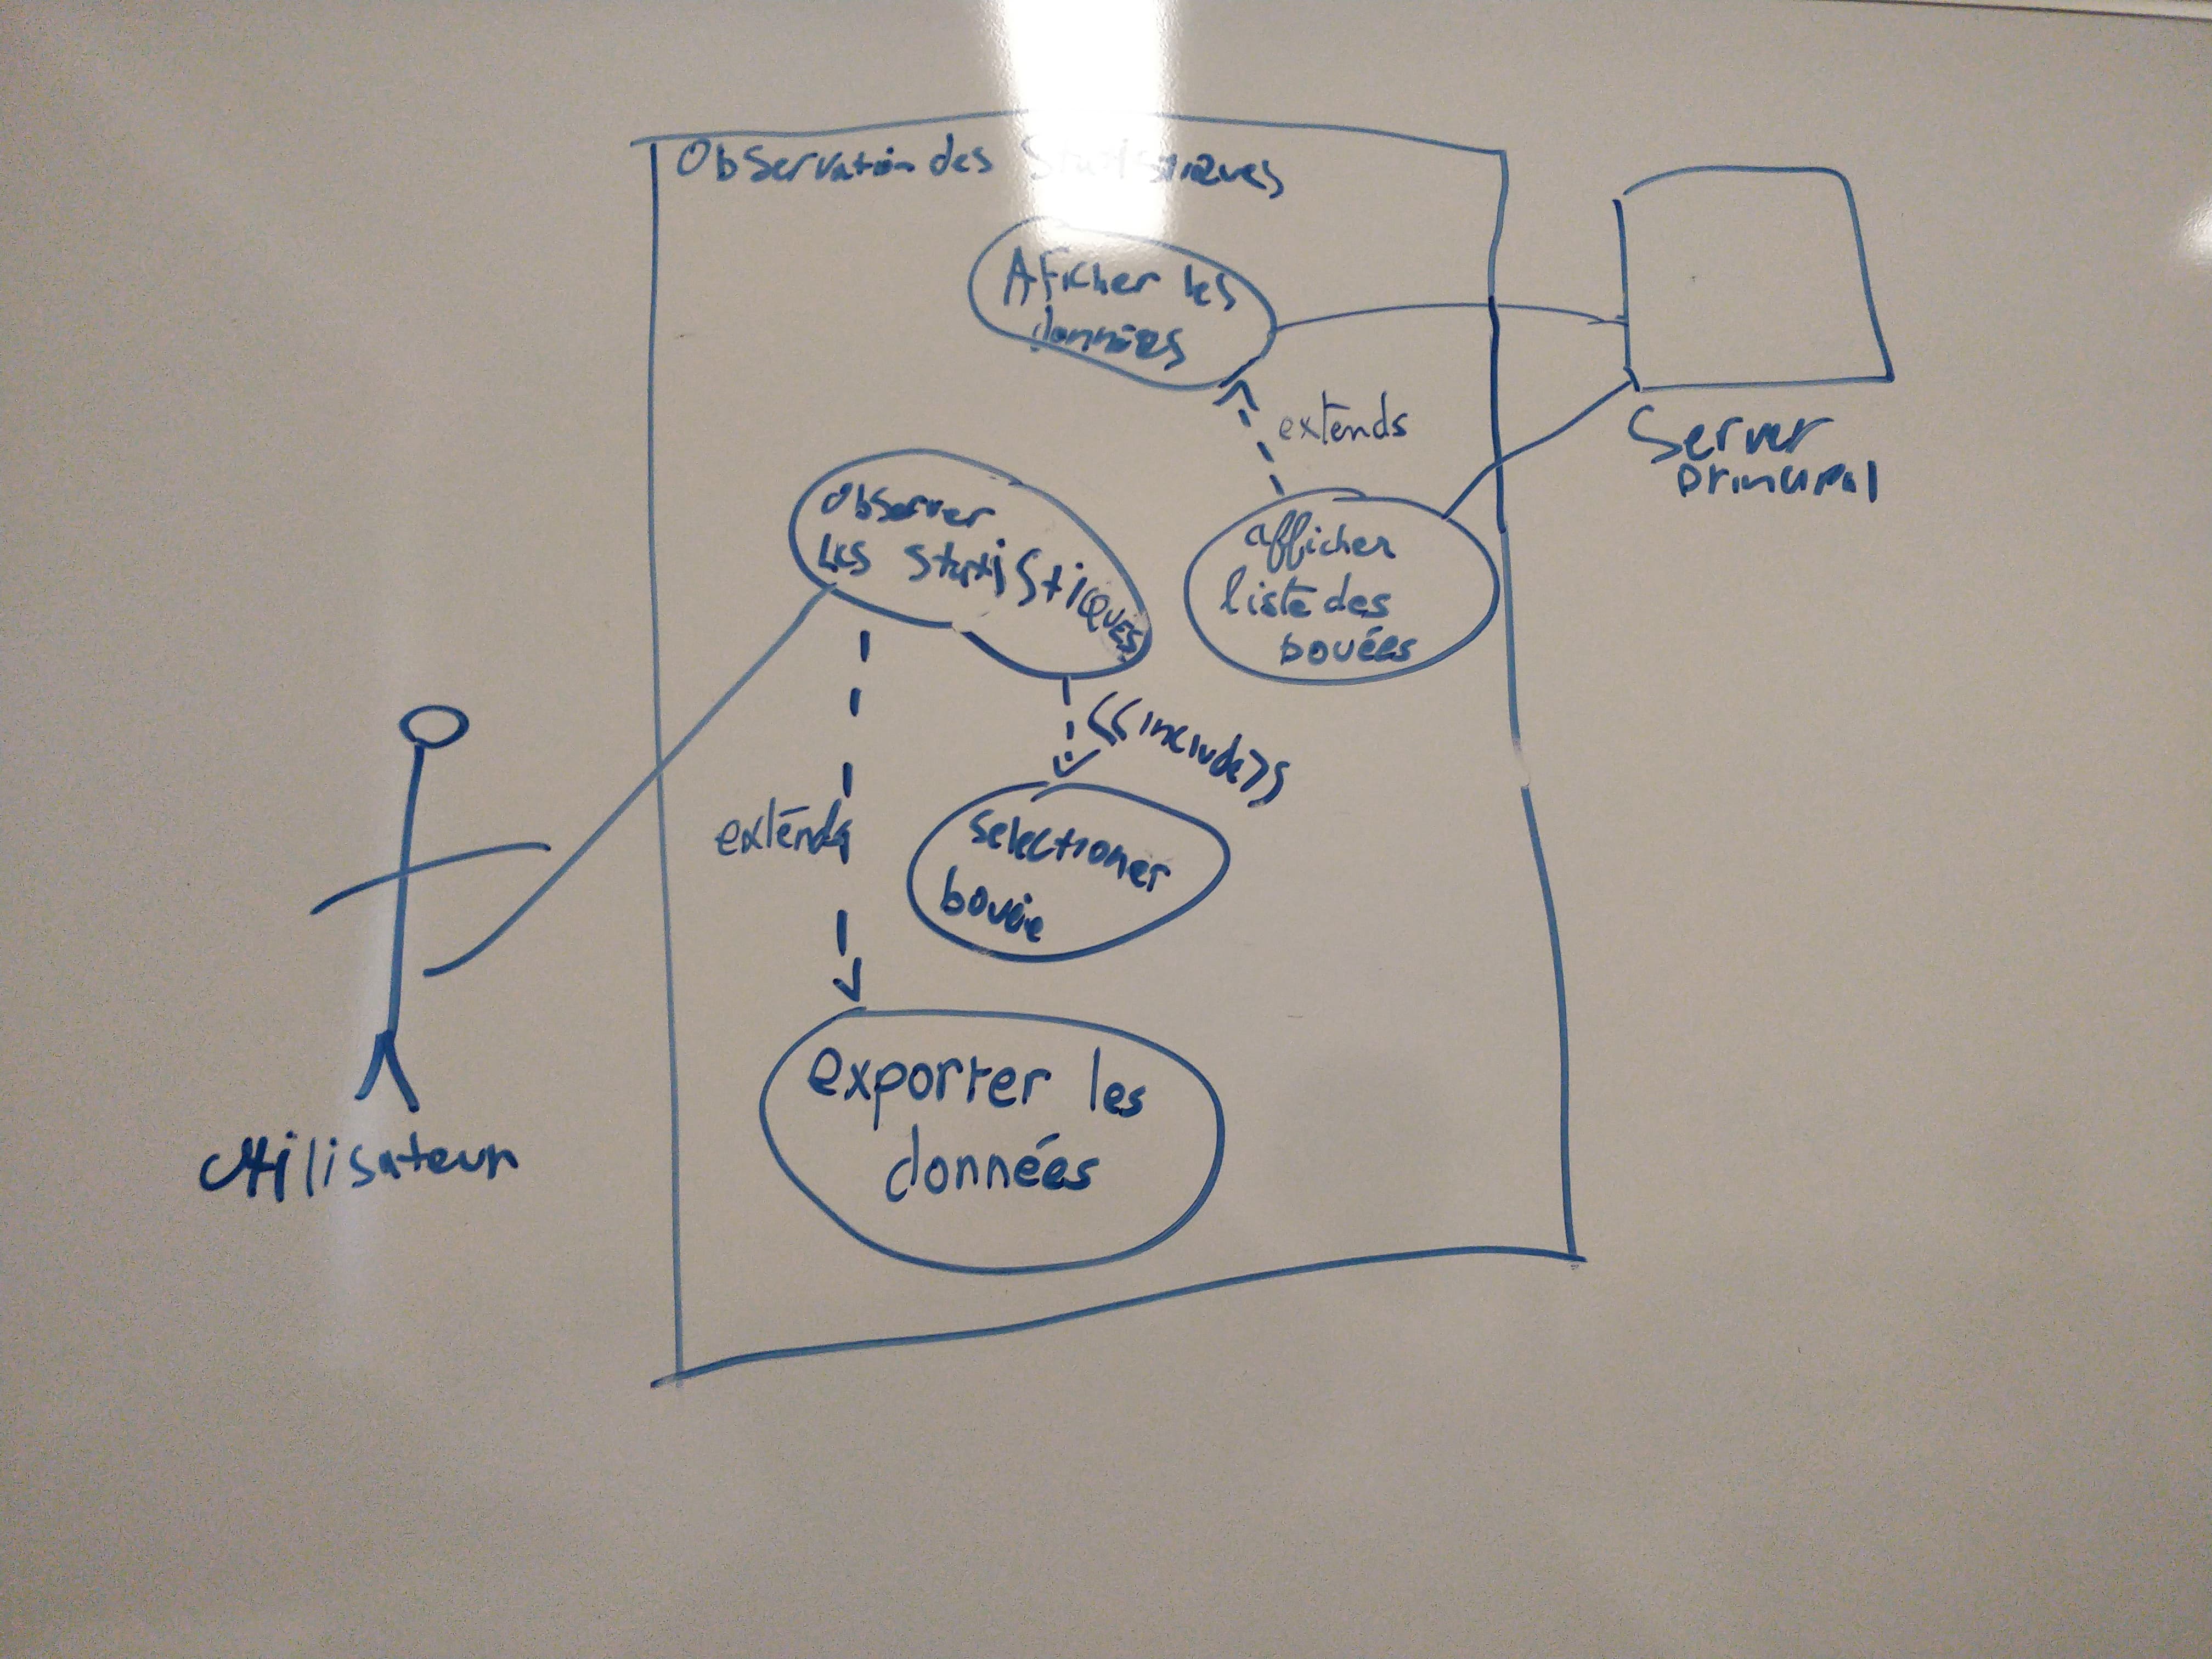 Observation des Statistiques
Aficher les
données
extends
Server
principal
Observer
Les statistiques
afficher
liste des
bouées
<<include>>
extends
selectioner
bouée
exporter les
données
Utilisateur